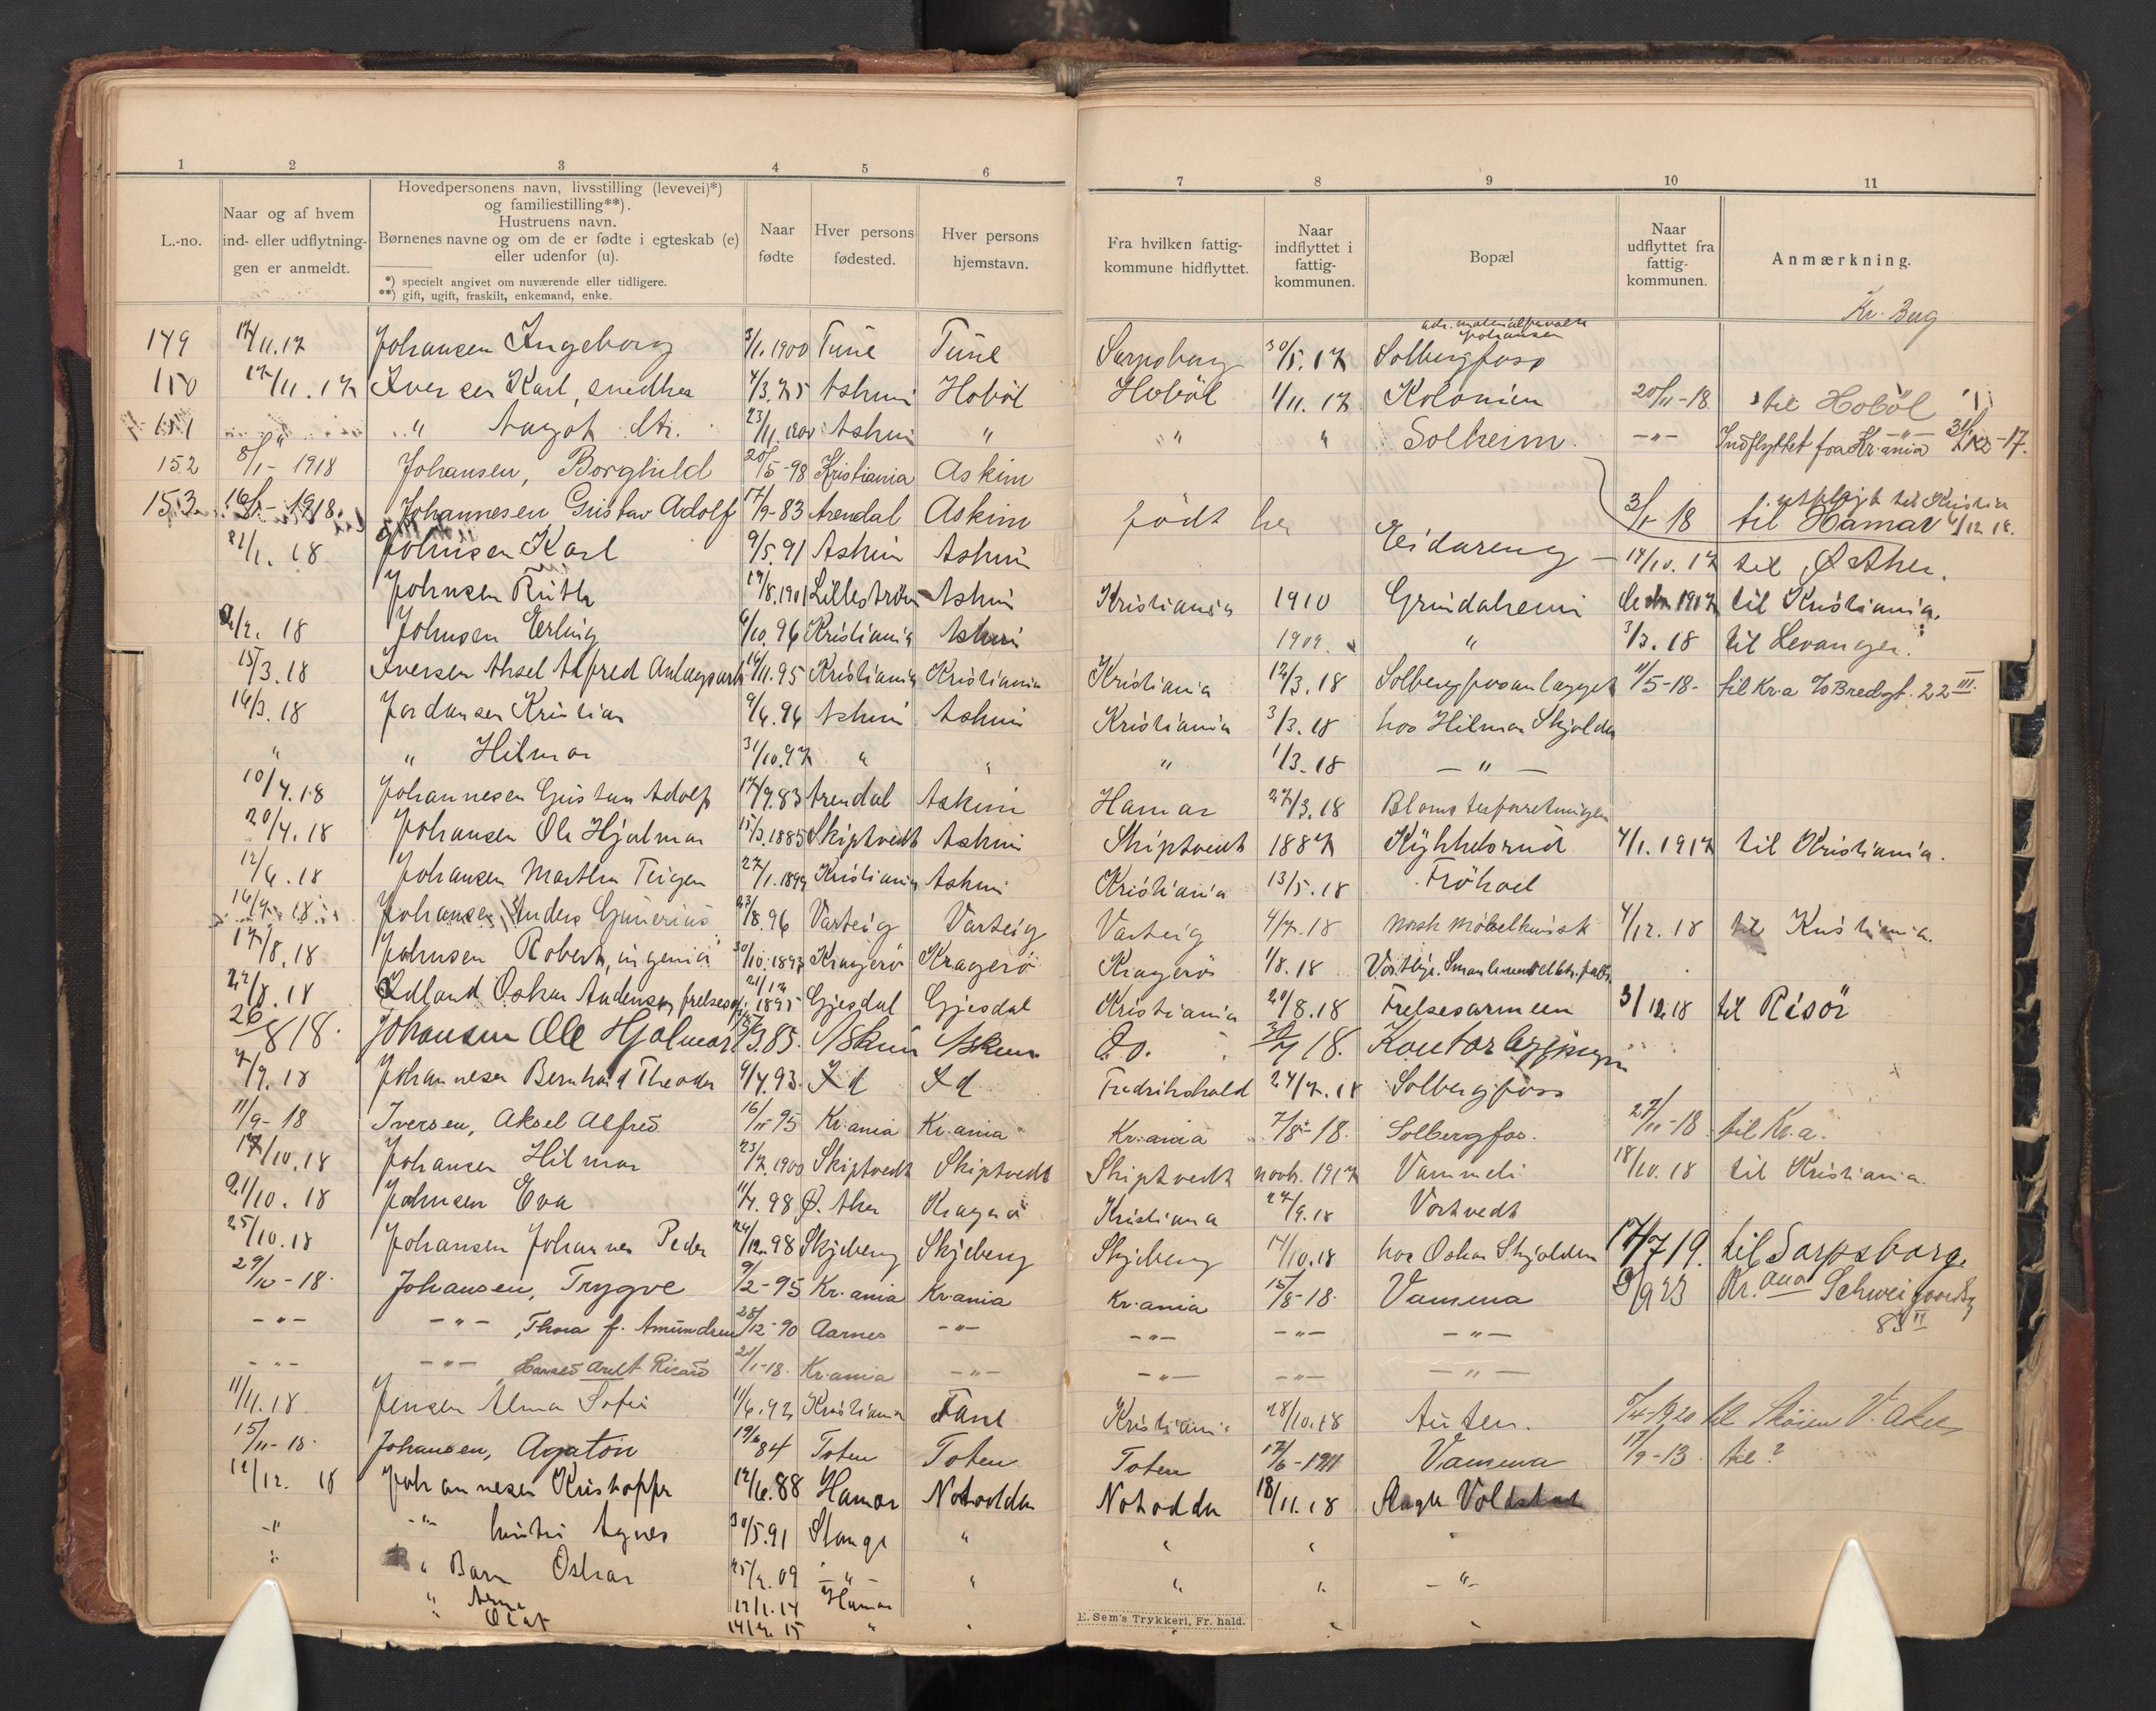 1 2 3 4 5 6 7 8 9 10 11
L.-no.
Naar og af hvem
ind- eller udflytnin-
gen er anmeldt.
Hovedpersonens navn, livsstilling (levevei)*)
og familiestilling**).
Hustruens navn.
Børnenes navne og om de er fødte i egteskab (e)
eller udenfor (u).
*) specielt angivet om nuværende eller tidligere.
**) gift, ugift, fraskilt, enkemand, enke.
Naar
fødte
Hver persons
fødested.
Hver persons
hjemstavn.
Fra hvilken fattig-
kommune hidflyttet.
Naar
indflyttet i
fattig-
kommunen.
Bopæl
Naar
udflyttet fra
fattig-
kommunen.
Anmærkning.
Kr. Berg
149 17/11.17 Johansen Ingeborg 3/1.1900 Tune Tune Sarpsborg 30/5.17 Solbergfoss
150 17/11.17 Iversen Karl, snedker 4/3.75 Askim Hobøl Hobøl 1/11.17 Kolonien 20/11-18 til Hobøl
151 " " Aagot 23/11.1900 Askim " " " Solheim -"- -"-
152 8/1-1918 Johansen, Borghild 20/5-98 Kristiania Askim Indflyttet fra Kr.ania
153 16/1-1918. Johannesen Gustav Adolf 17/9-83 Arendal Askim født her 3/1-18 til Hamar
21/1.18 Johnsen Karl 9/5.91 Askim Askim Eidareng 14/10.17 til Ø Aker.
Johnsen Ruth 19/8.1901 Lillestrøm Askim Kristiania 1910 Grindaheim 1917 til Kristiania.
2/2.18 Johnsen Erling 6/10.96 Kristiania Askim 1909. " 3/3.18 til Levanger.
15/3.18 Iversen Aksel Alfred Anlægsarb 16/11.95 Kristiania Kristiania Kristiania 12/3.18 Solbergfossanlægget 11/5-18- til Kr.a % Bredgt. 22 III.
16/3.18 Jordansen Kristian 9/6.96 Askim Askim Kristiania 3/3.18 hos Hilmar Skjolden
" " Hilmar 31/10.97 " " " 1/3.18 -"-
10/4.18 Johannesen Gustav Adolf 17/9.83 Arendal Askim Hamar 27/3.18 Blomsterforretningen
20/4.18 Johansen Ole Hjalmar 15/3.1885 Skiptvedt Askim Skiptvedt 1887 Kykkelsrud 4/1.1917 til Kristiania.
12/6.18 Johansen Martha Teigen 27/1.1899 Kristiania Askim Kristiania 13/5.18 Frøhoel
16/7.18 Johansen Anders Gunerius 23/8.96 Varteig Varteig Varteig 4/7.18 Norsk Møbelkunst 4/12.18 til Kristiania.
17/8.18 Johnsen Robert, ingeniør 30/10.1893 Kragerø Kragerø Kragerø 1/8.18
22/8.18 Edland Oskar Andersen, 1895 Gjesdal Gjesdal Kristiania 20/8.18 Frelsesarmeen 3/12.18 til Risør
26/8 18. Johansen Ole Hjalmar 15/3.85. Askim Askim Do. 30/7 18. Kontorbygningen
7/9.18 Johannesen Bernhard Theodor 6/4.93 Id Id Fredrikshald 24/7.18 Solbergfoss
11/9-18 Iversen, Aksel Alfred 16/11-95 Kr.ania Kr.ania Kr:ania 7/8-18. Solbergfos. 27/11-18 til Kr.a.
17/10.18 Johansen Hilmar 23/7.1900 Skiptvedt Skiptvedt Skiptvedt novb. 1917 Vammeli 18/10.18 til Kristiania.
21/10.18 Johnsen Eva 11/4.98 Ø. Aker Kragerø Kristiania 27/9.18 Vortvedt
25/10.18 Johansen Johannes Peder 24/12.98 Skjeberg Skjeberg Skjeberg 17/10.18 hos Oskar Skjolden 17/7 19. til Sarpsborg.
29/10-18. Johansen, Trygve 9/2-95 Kr.ania Kr.ania Kr.ania 15/8-18. Vamma 3/9 23 Kr.ana Schweigaardsg
83 II
-"- -"- Thora f. Amundsen 28/12-90 Aarnes -"- -"- -"- -"-
-"- -"- Harald Arelt Ricard 21/1-18. Kr.ania -"- -"- -"- -"-
11/11.18 Jensen Alma Sofie 11/6.92 Kristiania Fane Kristiania 28/10.18 Auten. 8/4-1920 til Skøien V. Aker
15/11-18. Johansen, Agaton 19/6 84 Toten Toten Toten 17/6-1911 Vamma 17/9-13 til ?
12/12.18 Johannesen Kristoffer 12/6.88 Hamar Notodden Notodden 18/11.18
-" -"- hustru Agnes 30/5.91 Stange " " " "
" " Barn Oskar 25/2.09 -"- " " " -"-
" Arne 12/1.14 Hamar
" Olaf 14/2.15 " " " " "
E. Sem's Trykkeri, Fr. hald.